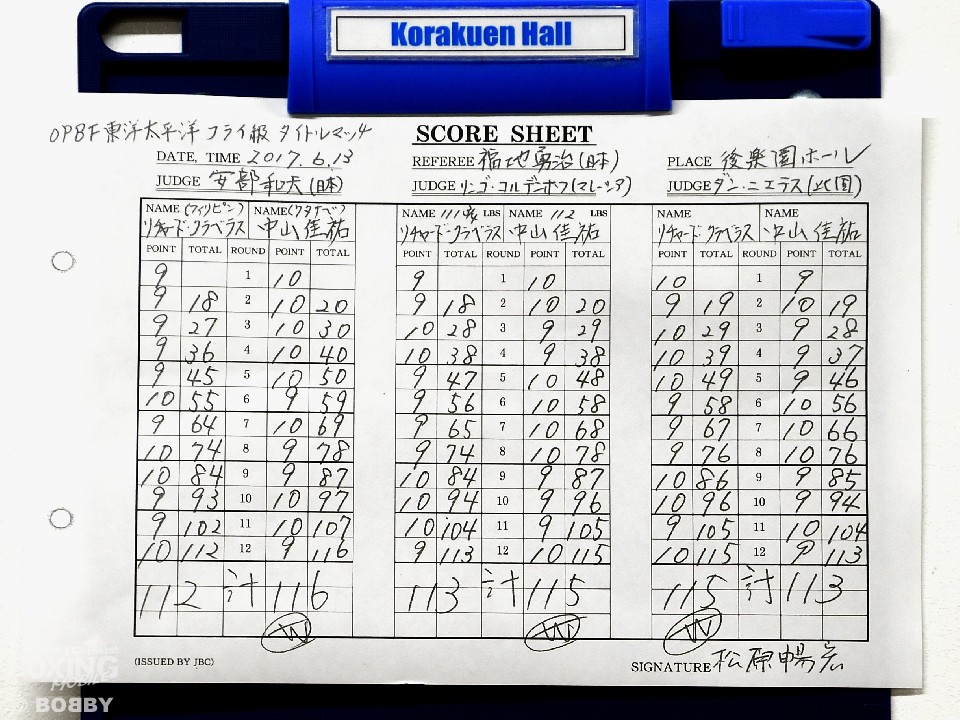 Korakuen Hall
OPBF 東洋太平洋 フライ級 タイトルマッチ
SCORE SHEET
DATE, TIME 2017. 6. 13 REFEREE 福地勇治(日本) PLACE 後楽園ホール
JUDGE 安部和夫(日本) JUDGE リンゴ・コルデンホフ(マレーシア) JUDGE ダン・ニエラス(比国)
NAME (フィリピン) NAME (ワタナベ) NAME 111 LBS NAME 112 LBS NAME NAME
リチャード・クラベラス 中山佳祐 リチャード・クラベラス 中山佳祐 リチャード・クラベラス 中山佳祐
POINT TOTAL ROUND POINT TOTAL POINT TOTAL ROUND POINT TOTAL POINT TOTAL ROUND POINT TOTAL
9 1 10 9 1 10 10 1 9
9 18 2 10 20 9 18 2 10 20 9 19 2 10 19
9 27 3 10 30 10 28 3 9 29 10 29 3 9 28
9 36 4 10 40 10 38 4 9 38 10 39 4 9 37
9 45 5 10 50 9 47 5 10 48 10 49 5 9 46
10 55 6 9 59 9 56 6 10 58 9 58 6 10 56
9 64 7 10 69 9 65 7 10 68 9 67 7 10 66
10 74 8 9 78 9 74 8 10 78 9 76 8 10 76
10 84 9 9 87 10 84 9 9 87 10 86 9 9 85
9 93 10 10 97 10 94 10 9 96 10 96 10 9 94
9 102 11 10 107 10 104 11 9 105 9 105 11 10 104
10 112 12 9 116 9 113 12 10 115 10 115 12 9 113
112 計 116 113 計 115 115 計 113
W W W
(ISSUED BY JBC) SIGNATURE 松原暢宏
BOXING
© BOBBY